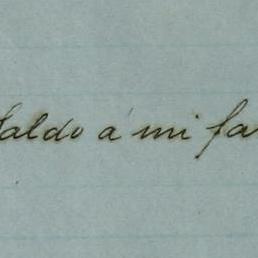 Saldo á mi fa